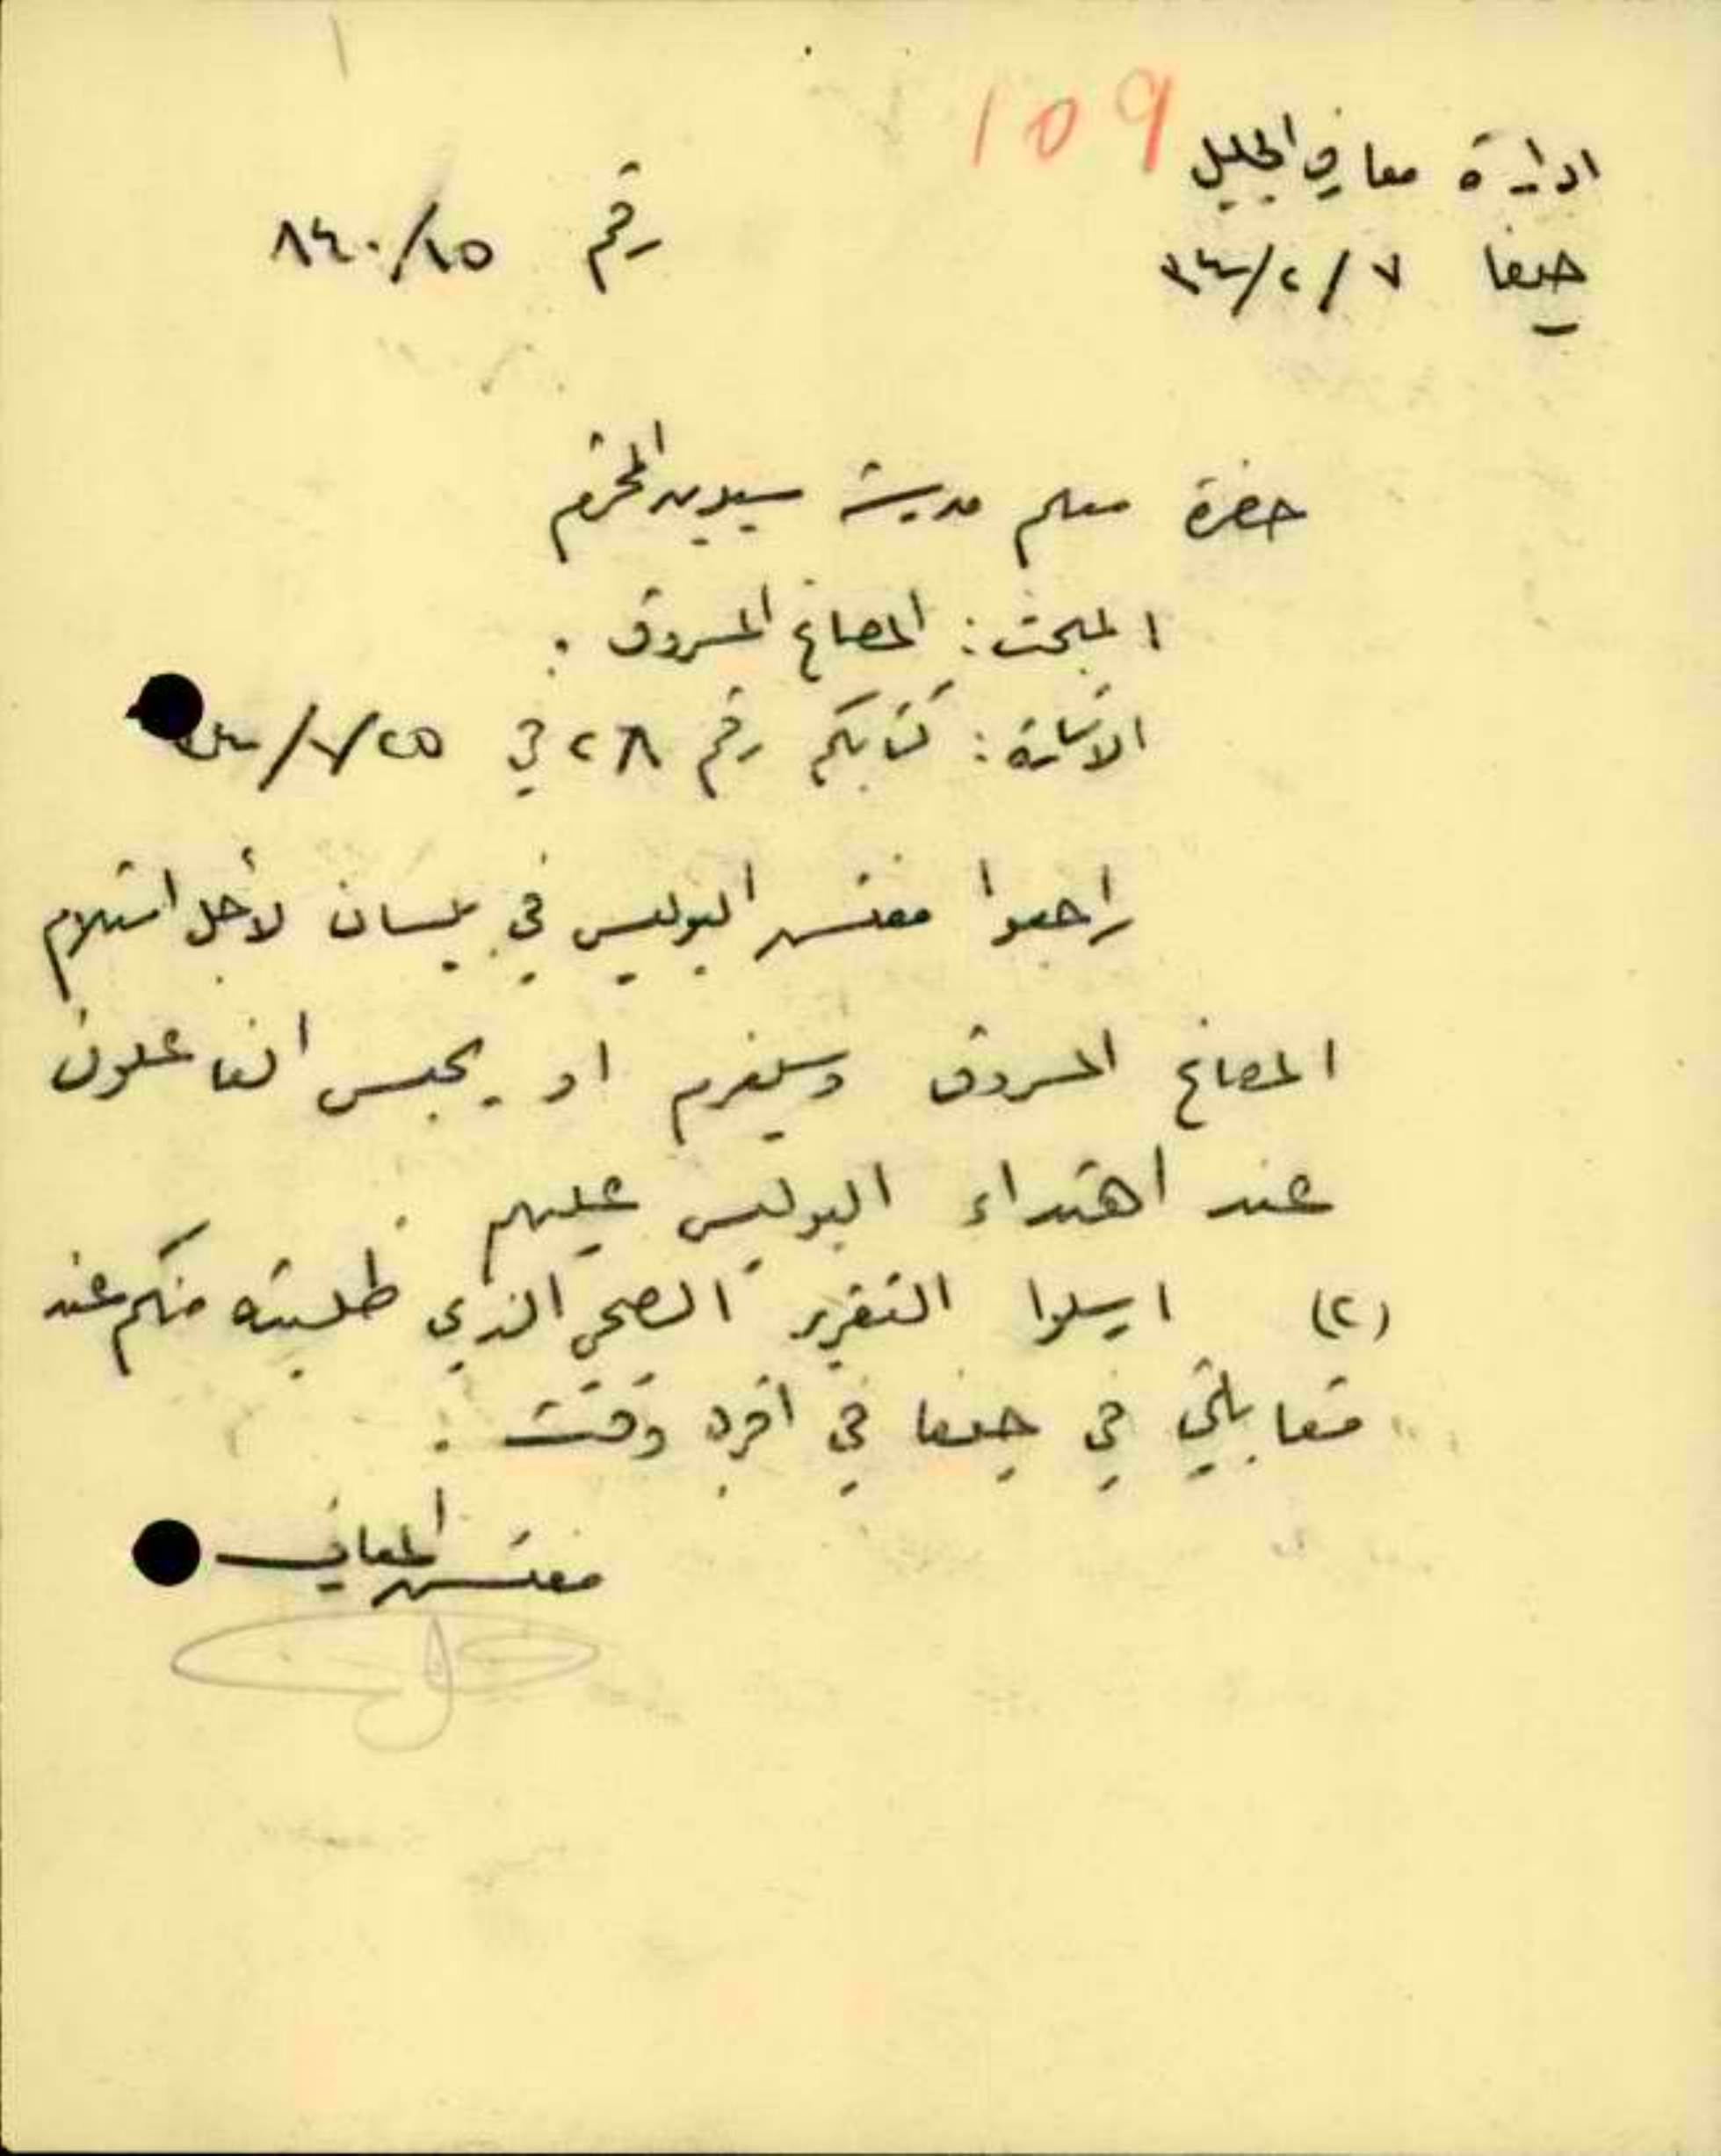 109
ادارة معارف الجليل
حيفا ٧/٢/٣٤
رقم ٨٤٠/١٥
حضرة معلم مدرسة سيرين المحترم
المبحث: المصاغ المسروق.
الاشارة: كتابكم رقم ٢٨ في ٢٥/١/٣٤
راجعوا مفتش البوليس في بيسان لأجل استلام
المصاغ المسروق وسيغرم او يحبس الفاعلون
عند اهتداء البوليس عليهم.
(٢) ارسلوا التقرير الصحي الذي طلبته منكم عند
مقابلتي في حيفا في اقرب وقت.
مفتش المعارف